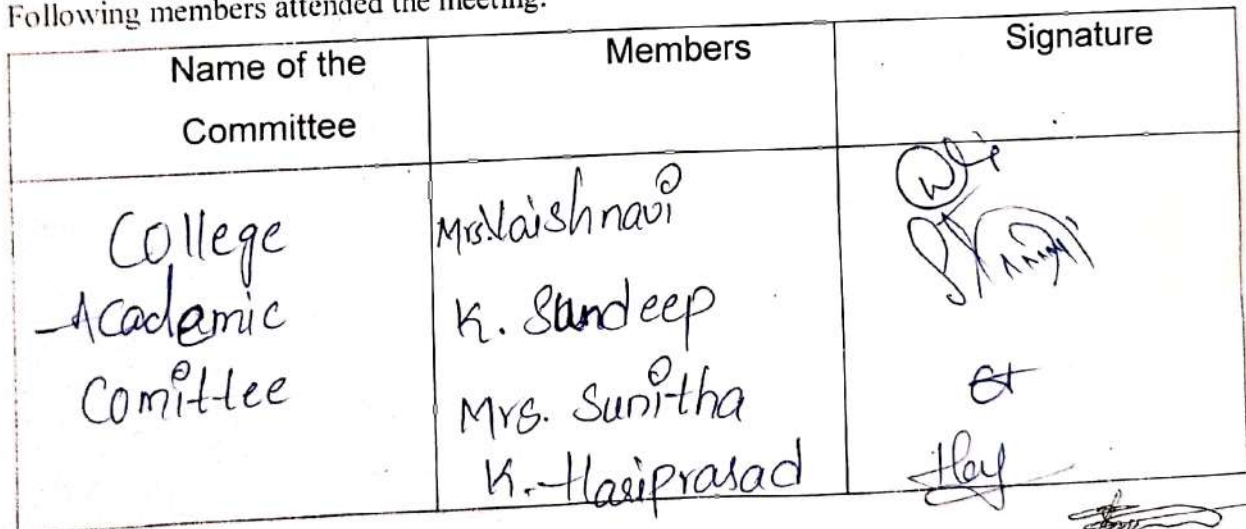 Following members attended the meeting:
Name of the Committee
Members
Signature
College
Academic
Comittee
Mrs. Vaishnavi
K. Sandeep
Mrs. Sunitha
K. Hariprasad